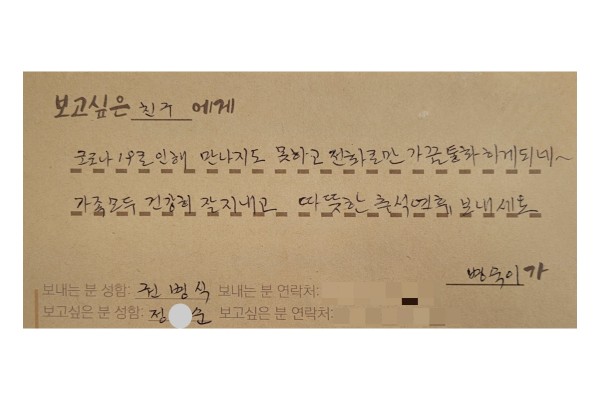 보고싶은 친구 에게
코로나 19로 인해 만나지도 못하고 전화로만 가끔 통화하게되네~
가족모두 건강히 잘지내고 따뜻한 추석연휴 보내세요
병숙이가
보내는 분 성함: 권병숙 보내는 분 연락처:
보고싶은 분 성함: 정 순 보고싶은 분 연락처: